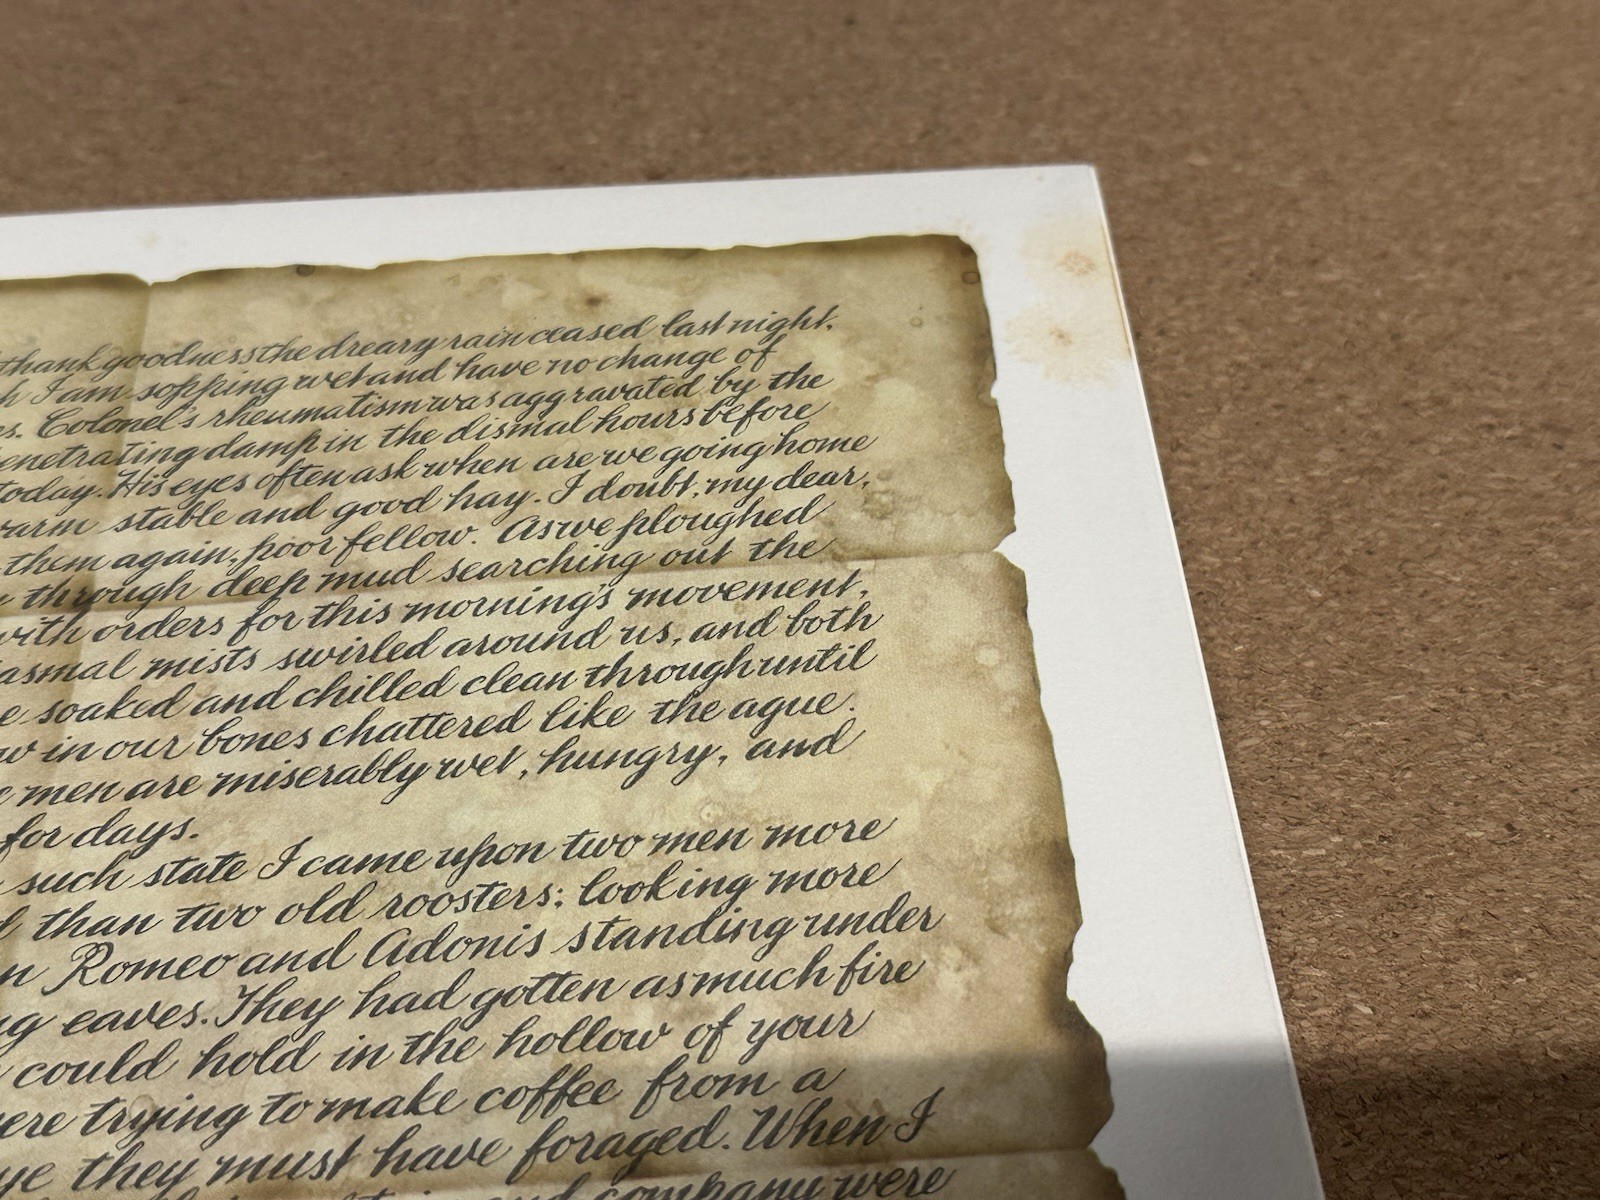 thank goodness the dreary rain ceased last night.
I am sopping wet and have no change of
Colonel's rheumatism was aggravated by the
enetrating damp in the dismal hours before
today. His eyes often ask when are we going home
warm stable and good hay. I doubt, my dear,
them again, poor fellow. As we ploughed
through deep mud searching out the
with orders for this morning's movement,
asmal mists swirled around us, and both
e soaked and chilled clean through until
w in our bones chattered like the ague.
men are miserably wet, hungry, and
for days.
such state I came upon two men more
than two old roosters; looking more
n Romeo and Adonis standing under
ng eaves. They had gotten as much fire
could hold in the hollow of your
ere trying to make coffee from a
ye they must have foraged. When I
company were